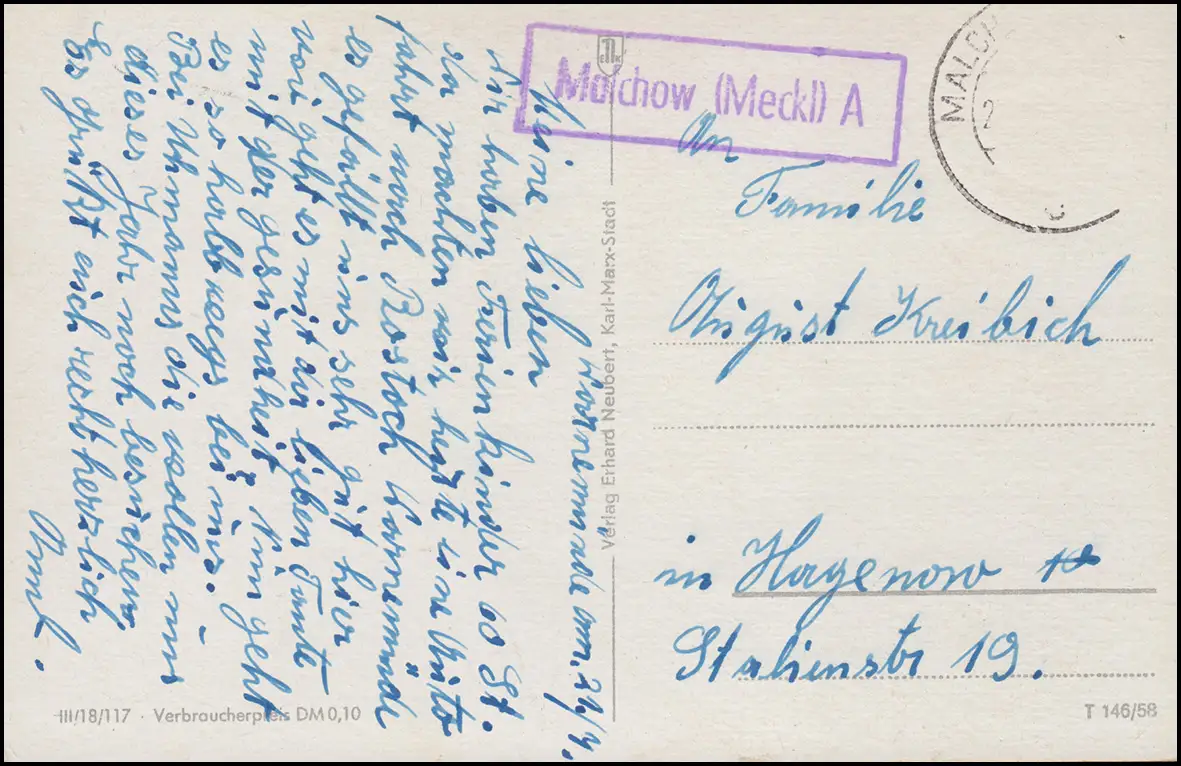 Malchow (Meckl) A
MALCH
2
An
Familie
August Kreibich
in Hagenow
Stalienstr 19.
Warnemünde am. 21/7.
Meine lieben
Wir haben Ferienkinder 60 St.
da machten wir heute eine Auto
fahrt nach Rostock Warnemünde
es gefällt uns sehr gut hier
wie geht es mit dir lieben Tante
mit der gesundheit Nun geht
es so halbwegs bei uns.
Bei Uhmanns die wollen uns
dieses Jahr noch besuchen.
Es grüßt euch recht herzlich
Verlag Erhard Neubert, Karl-Marx-Stadt
III/18/117 · Verbraucherpreis DM 0,10
T 146/58